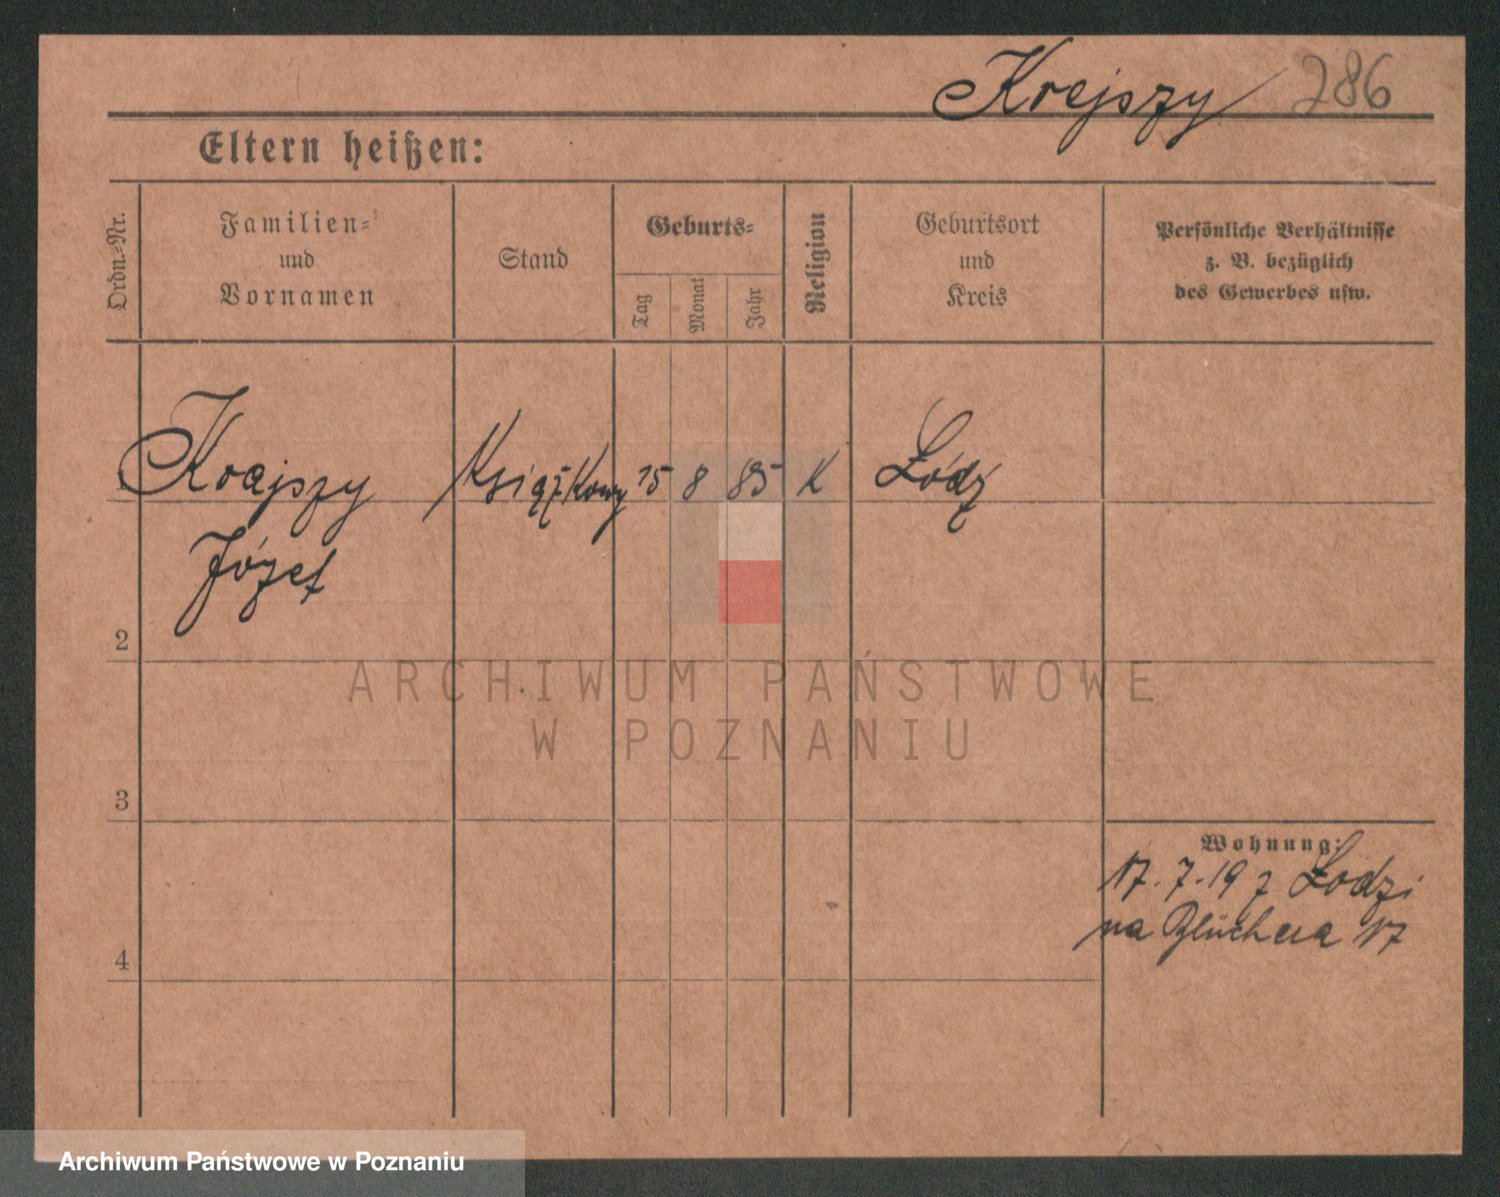 Krejszy 286
Eltern heißen:
Ordn.=Nr.
Familien=
und
Vornamen
Stand
Geburts=
Tag
Monat
Jahr
Religion
Geburtsort
und
Kreis
Persönliche Verhältnisse
z. B. bezüglich
des Gewerbes usw.
Krejszy Książkowy 15 8 85 K Łódź
Józef
2
3
4
Wohnung:
17.7.19 z Łodzi
na Blüchera 17
ARCHIWUM PAŃSTWOWE
W POZNANIU
Archiwum Państwowe w Poznaniu